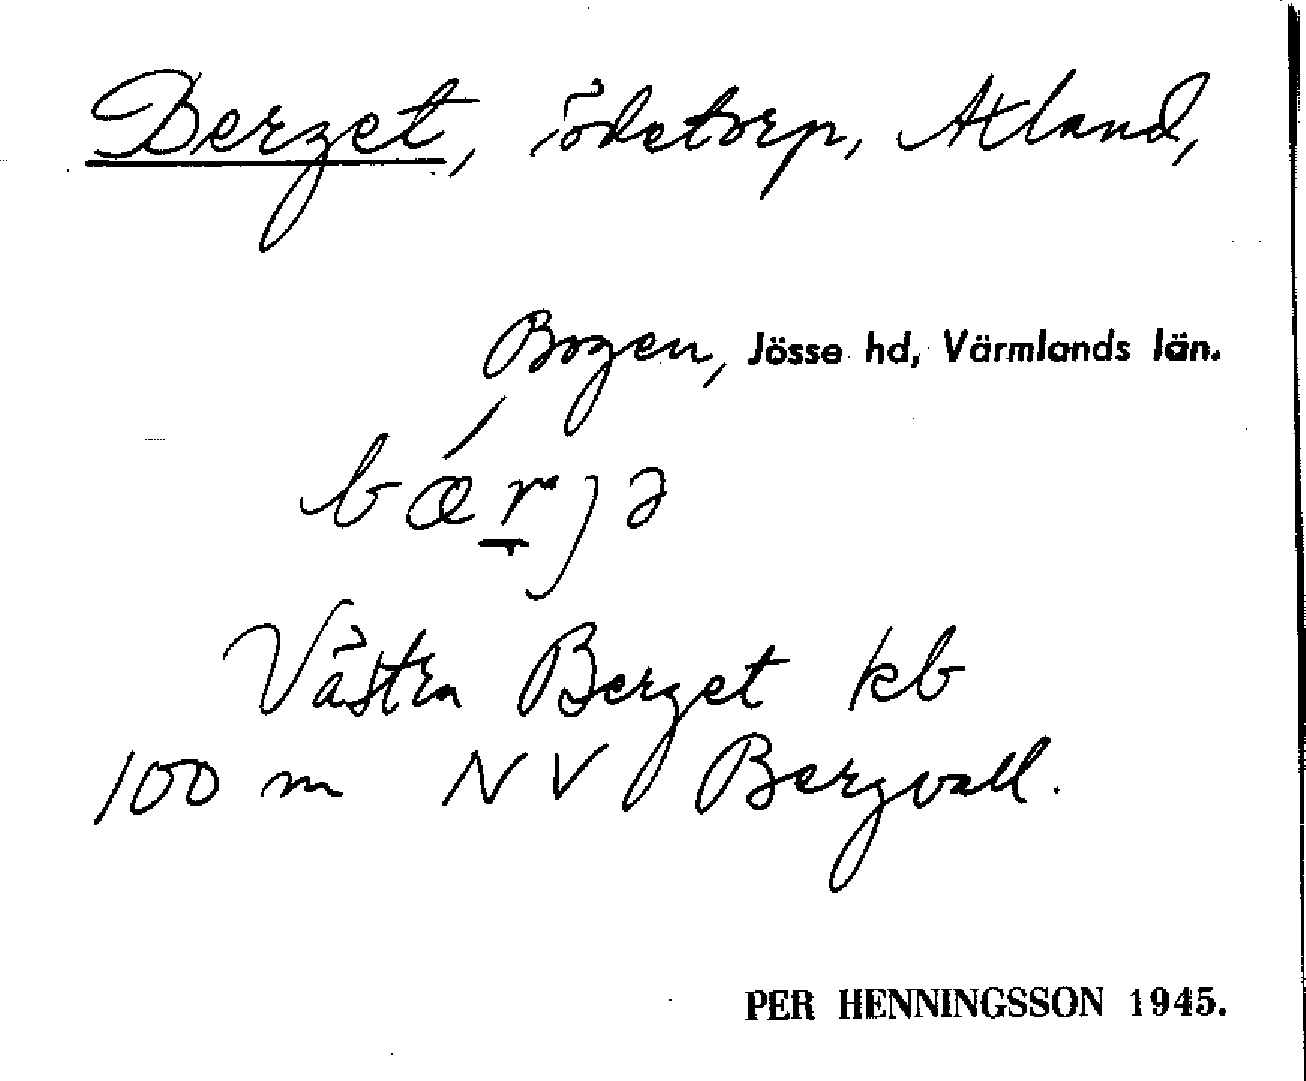 Berget, ödetorp, Åtland,
Bogen, Jösse hd, Värmlands län.
bæ´r̠jə
Västra Berget kb
100 m NV Bergvall.
PER HENNINGSSON 1945.